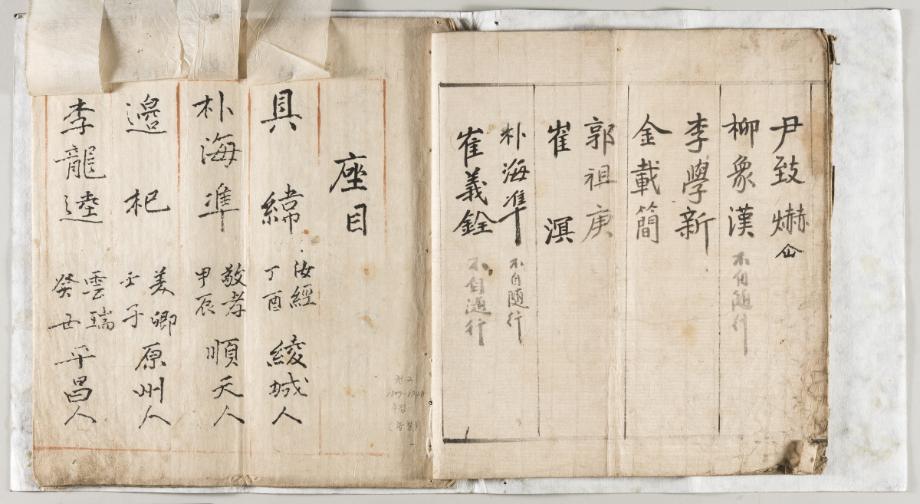 尹致爀
柳象漢 不自隨行
李學新
金載簡
郭祖庚
崔溟
朴海準 不自隨行
崔義銓 不自隨行
座目
具緯 汝經 丁酉 綾城人
朴海準 敬孝 甲辰 順天人
邉杞 美卿 壬子 原州人
李龍逵 雲瑞 癸丑 平昌人